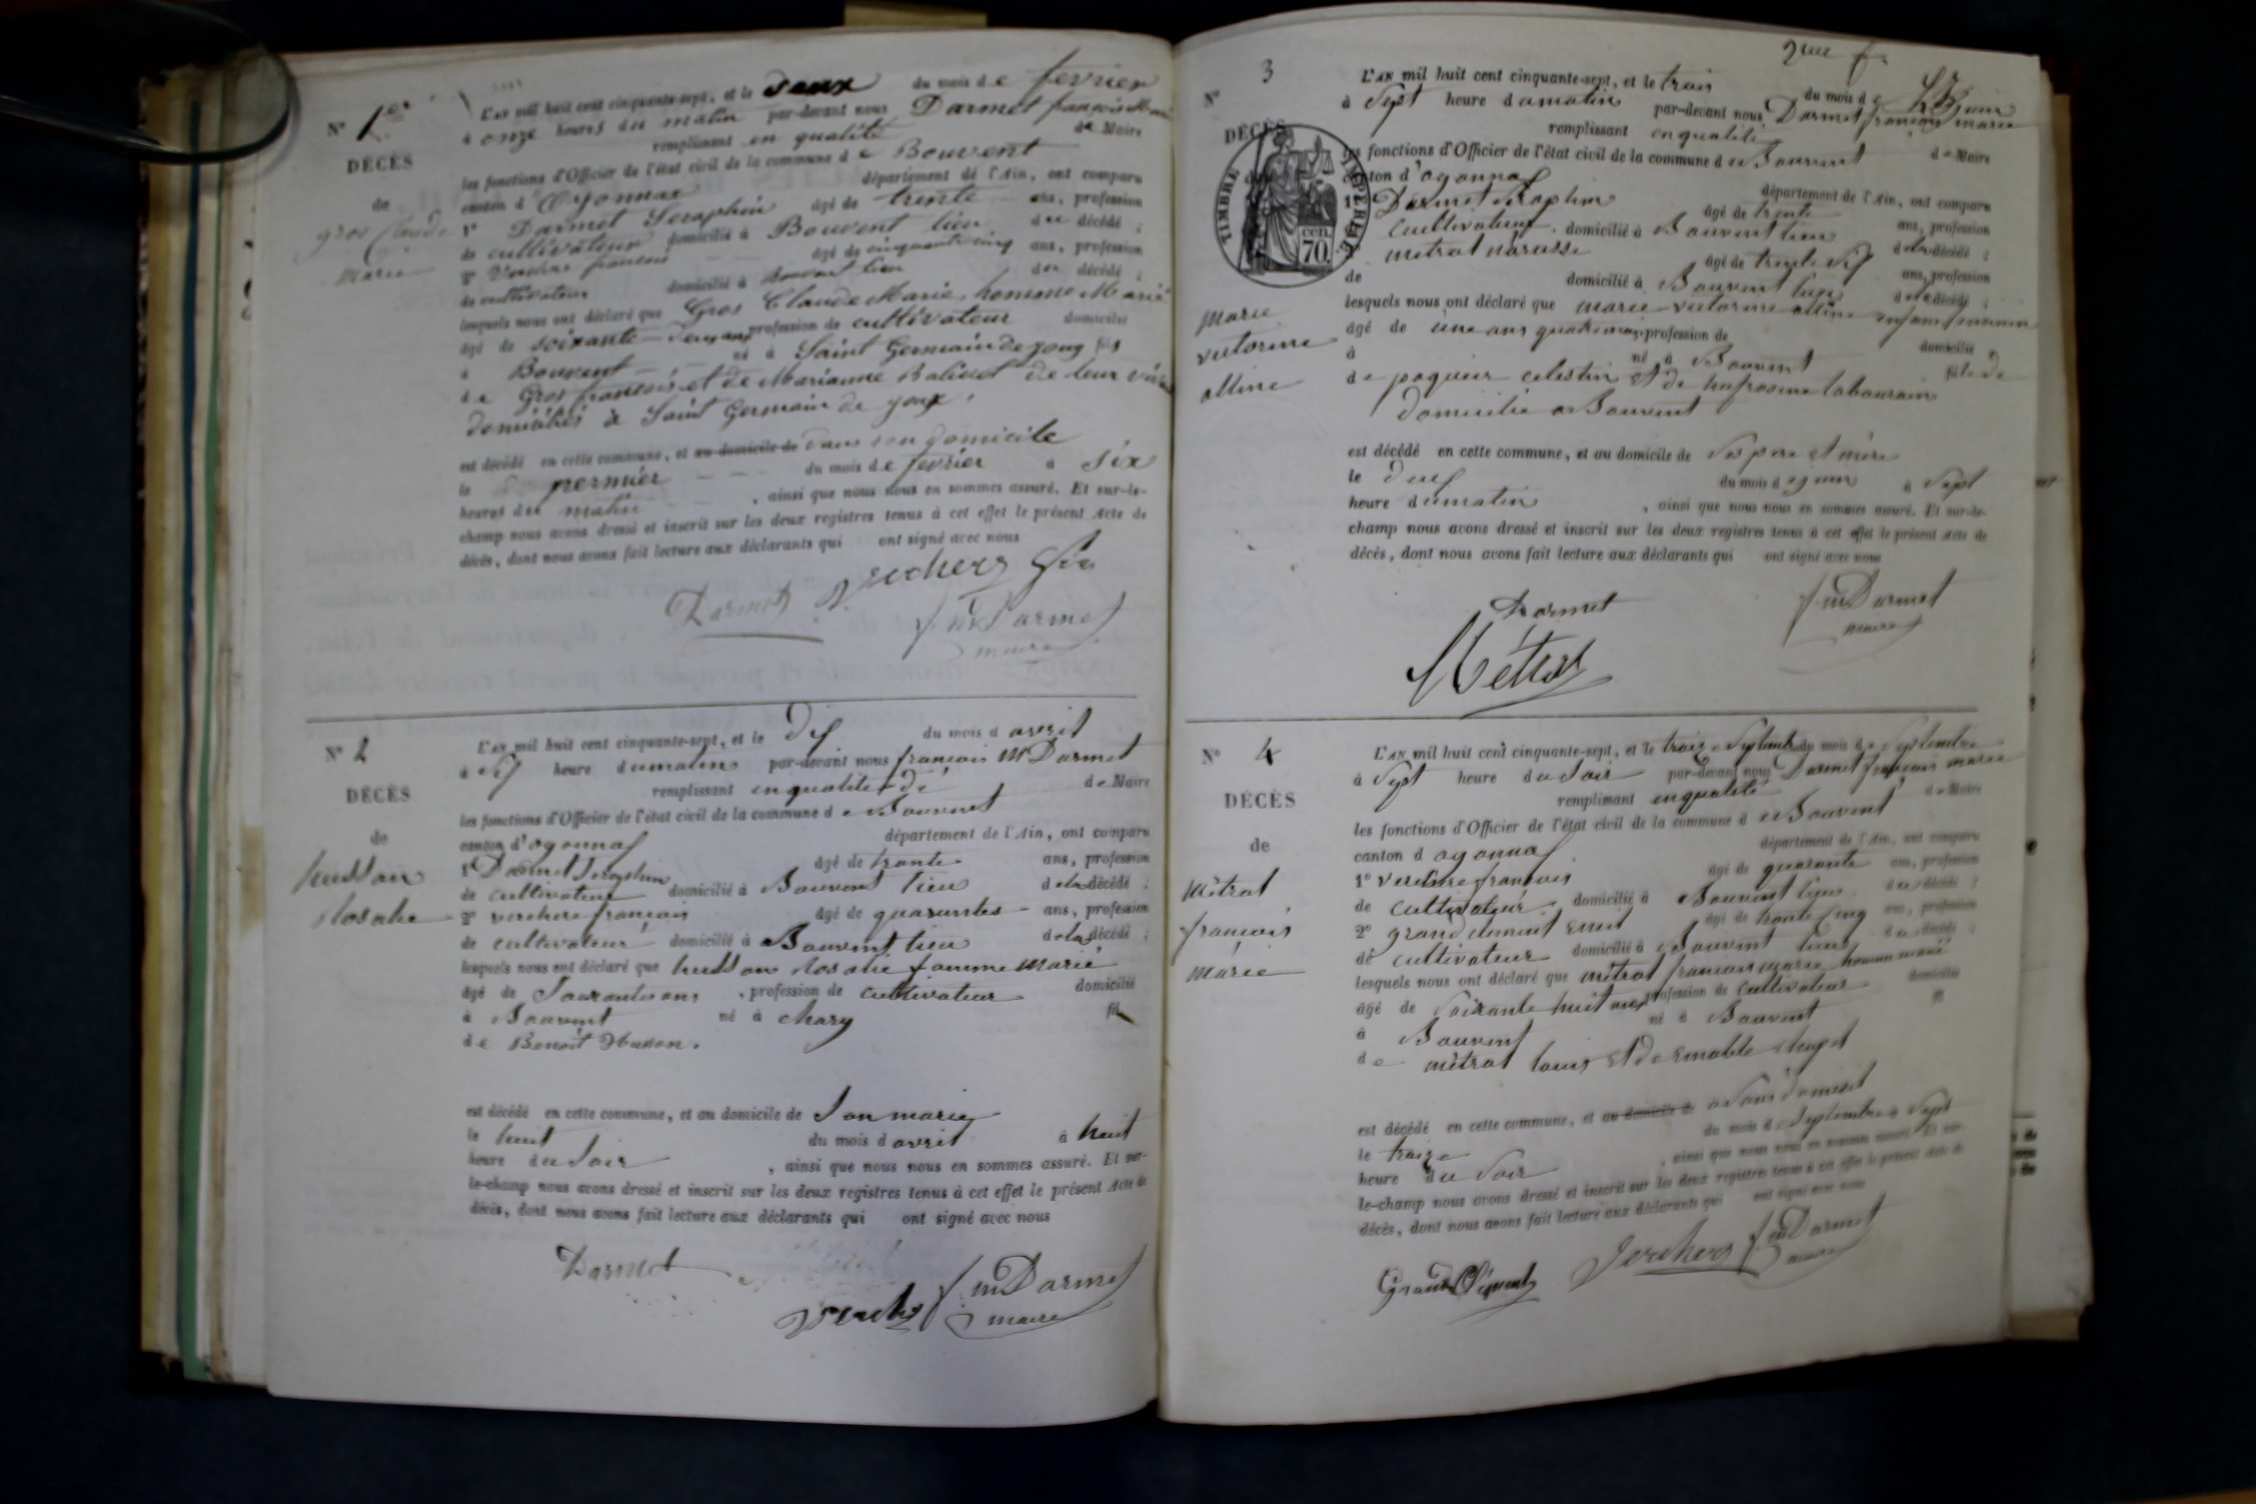 N° 1er
DÉCÈS
de
gros Claude
Marie
L'AN mil huit cent cinquante-sept, et le deux du mois de fevrier
à onze heures du matin par-devant nous Darmet françois Marie
remplissant en qualité de Maire
les fonctions d'Officier de l'état civil de la commune de Bouvent
canton d'Oyonnax département de l'Ain, ont comparu
1° Darmet Seraphin âgé de trente ans, profession
de cultivateur domicilié à Bouvent lieu du décédé ;
2° françois âgé de cinquante cinq ans, profession
de cultivateur domicilié à Bouvent lieu du décédé ;
lesquels nous ont déclaré que Gros Claude Marie, homme Marié
âgé de soixante ans profession de cultivateur domicilié
à Bouvent né à Saint Germain de joug fils
de Gros françois et de Marianne de leur
domiciliés à Saint Germain de joux
est décédé en cette commune, et au domicile de dans son domicile
le permier du mois de fevrier à six
heures du matin, ainsi que nous nous en sommes assuré. Et sur-le-
champ nous avons dressé et inscrit sur les deux registres tenus à cet effet le présent Acte de
décès, dont nous avons fait lecture aux déclarants qui ont signé avec nous
Darmet Verchere
f. m Darmet
maire
N° 2
DÉCÈS
de
hudson
Rosalie
L'AN mil huit cent cinquante-sept, et le dix du mois d avril
à heure dumatin par-devant nous françois M Darmet
remplissant en qualité de de Maire
les fonctions d'Officier de l'état civil de la commune de Bouvent
canton d'ogonnax département de l'Ain, ont comparu
1° Darmet Seraphin âgé de trente ans, profession
de cultivateur domicilié à Bouvent lieu de la décédé ;
2° verchere françois âgé de quarante ans, profession
de cultivateur domicilié à Bouvent lieu de la décédé ;
lesquels nous ont déclaré que Rosalie famme marié
âgé de ans, profession de cultivateur domicilié
à Bouvent né à chary fil
de Benoit Husson.
est décédé en cette commune, et au domicile de Son marie
le huit du mois d avril à huit
heure du Soir, ainsi que nous nous en sommes assuré. Et sur-
le-champ nous avons dressé et inscrit sur les deux registres tenus à cet effet le présent Acte de
décès, dont nous avons fait lecture aux déclarants qui ont signé avec nous
Darmet
f. m Darmet
maire
2me f.
N° 3
DÉCÈS
TIMBRE IMPÉRIAL
CEN. 70.
marie
victorine
alline
L'AN mil huit cent cinquante-sept, et le trois du mois de juin
à Sept heure dumatin par-devant nous Darmet françois marie
remplissant en qualité de Maire
les fonctions d'Officier de l'état civil de la commune de Bouvent
canton d'ogonnax département de l'Ain, ont comparu
1° Darmet Seraphin âgé de trente ans, profession
cultivateur domicilié à Bouvent lieu de la décédé ;
métrat narcisse âgé de trente ans, profession
de domicilié à Bouvent lieu de la décédé ;
lesquels nous ont déclaré que marie victorine alline enfant
âgé de une ans quatre mois profession de domicilié
à né à Bouvent file de
de celestin et de
domicilie a Bouvent
est décédé en cette commune, et au domicile de Ses père et mère
le deux du mois de juin à Sept
heure dumatin, ainsi que nous nous en sommes assuré. Et sur-le-
champ nous avons dressé et inscrit sur les deux registres tenus à cet effet le présent Acte de
décès, dont nous avons fait lecture aux déclarants qui ont signé avec nous
Darmet
f. m Darmet
maire
Métrat
N° 4
DÉCÈS
de
Métrat
françois
marie
L'AN mil huit cent cinquante-sept, et le traize Septembre du mois de Septembre
à Sept heure du Soir par-devant nous Darmet françois marie
remplissant en qualité de Maire
les fonctions d'Officier de l'état civil de la commune de Bouvent
canton d ogonnax département de l'Ain, ont comparu
1° verchere françois âgé de quarante ans, profession
de cultivateur domicilié à Bouvent lieu du décédé ;
2° grand clement âgé de trante cinq ans, profession
de cultivateur domicilié à Bouvent lieu du décédé ;
lesquels nous ont déclaré que métrat françois marie homme marié
âgé de Soixante huit ans profession de cultivateur domicilié
à Bouvent né à Bouvent fil
de métrat louis et de
est décédé en cette commune, et au domicile de
le traize du mois de Septembre à Sept
heure du Soir, ainsi que nous nous en sommes assuré. Et sur-
le-champ nous avons dressé et inscrit sur les deux registres tenus à cet effet le présent Acte de
décès, dont nous avons fait lecture aux déclarants qui ont signé avec nous
Grand Clément Verchere f. m Darmet
maire